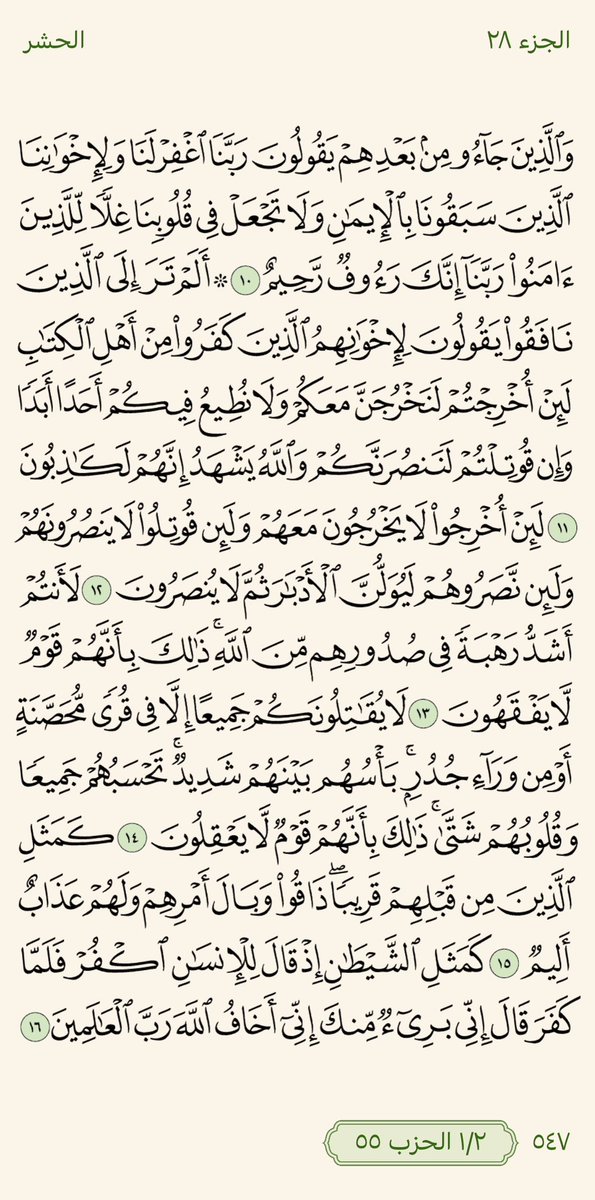 الجزء ٢٨
الحشر
وَٱلَّذِينَ جَآءُو مِنۢ بَعۡدِهِمۡ يَقُولُونَ رَبَّنَا ٱغۡفِرۡ لَنَا وَلِإِخۡوَٰنِنَا
ٱلَّذِينَ سَبَقُونَا بِٱلۡإِيمَٰنِ وَلَا تَجۡعَلۡ فِي قُلُوبِنَا غِلّٗا لِّلَّذِينَ
ءَامَنُواْ رَبَّنَآ إِنَّكَ رَءُوفٞ رَّحِيمٌ ١٠ ۞ أَلَمۡ تَرَ إِلَى ٱلَّذِينَ
نَافَقُواْ يَقُولُونَ لِإِخۡوَٰنِهِمُ ٱلَّذِينَ كَفَرُواْ مِنۡ أَهۡلِ ٱلۡكِتَٰبِ
لَئِنۡ أُخۡرِجۡتُمۡ لَنَخۡرُجَنَّ مَعَكُمۡ وَلَا نُطِيعُ فِيكُمۡ أَحَدًا أَبَدٗا
وَإِن قُوتِلۡتُمۡ لَنَنصُرَنَّكُمۡ وَٱللَّهُ يَشۡهَدُ إِنَّهُمۡ لَكَٰذِبُونَ
١١ لَئِنۡ أُخۡرِجُواْ لَا يَخۡرُجُونَ مَعَهُمۡ وَلَئِن قُوتِلُواْ لَا يَنصُرُونَهُمۡ
وَلَئِن نَّصَرُوهُمۡ لَيُوَلُّنَّ ٱلۡأَدۡبَٰرَ ثُمَّ لَا يُنصَرُونَ ١٢ لَأَنتُمۡ
أَشَدُّ رَهۡبَةٗ فِي صُدُورِهِم مِّنَ ٱللَّهِۚ ذَٰلِكَ بِأَنَّهُمۡ قَوۡمٞ
لَّا يَفۡقَهُونَ ١٣ لَا يُقَٰتِلُونَكُمۡ جَمِيعًا إِلَّا فِي قُرٗى مُّحَصَّنَةٍ
أَوۡ مِن وَرَآءِ جُدُرِۭۚ بَأۡسُهُم بَيۡنَهُمۡ شَدِيدٞۚ تَحۡسَبُهُمۡ جَمِيعٗا
وَقُلُوبُهُمۡ شَتَّىٰۚ ذَٰلِكَ بِأَنَّهُمۡ قَوۡمٞ لَّا يَعۡقِلُونَ ١٤ كَمَثَلِ
ٱلَّذِينَ مِن قَبۡلِهِمۡ قَرِيبٗاۖ ذَاقُواْ وَبَالَ أَمۡرِهِمۡ وَلَهُمۡ عَذَابٌ
أَلِيمٞ ١٥ كَمَثَلِ ٱلشَّيۡطَٰنِ إِذۡ قَالَ لِلۡإِنسَٰنِ ٱكۡفُرۡ فَلَمَّا
كَفَرَ قَالَ إِنِّي بَرِيٓءٞ مِّنكَ إِنِّيٓ أَخَافُ ٱللَّهَ رَبَّ ٱلۡعَٰلَمِينَ ١٦
٥٤٧
١/٢ الحزب ٥٥